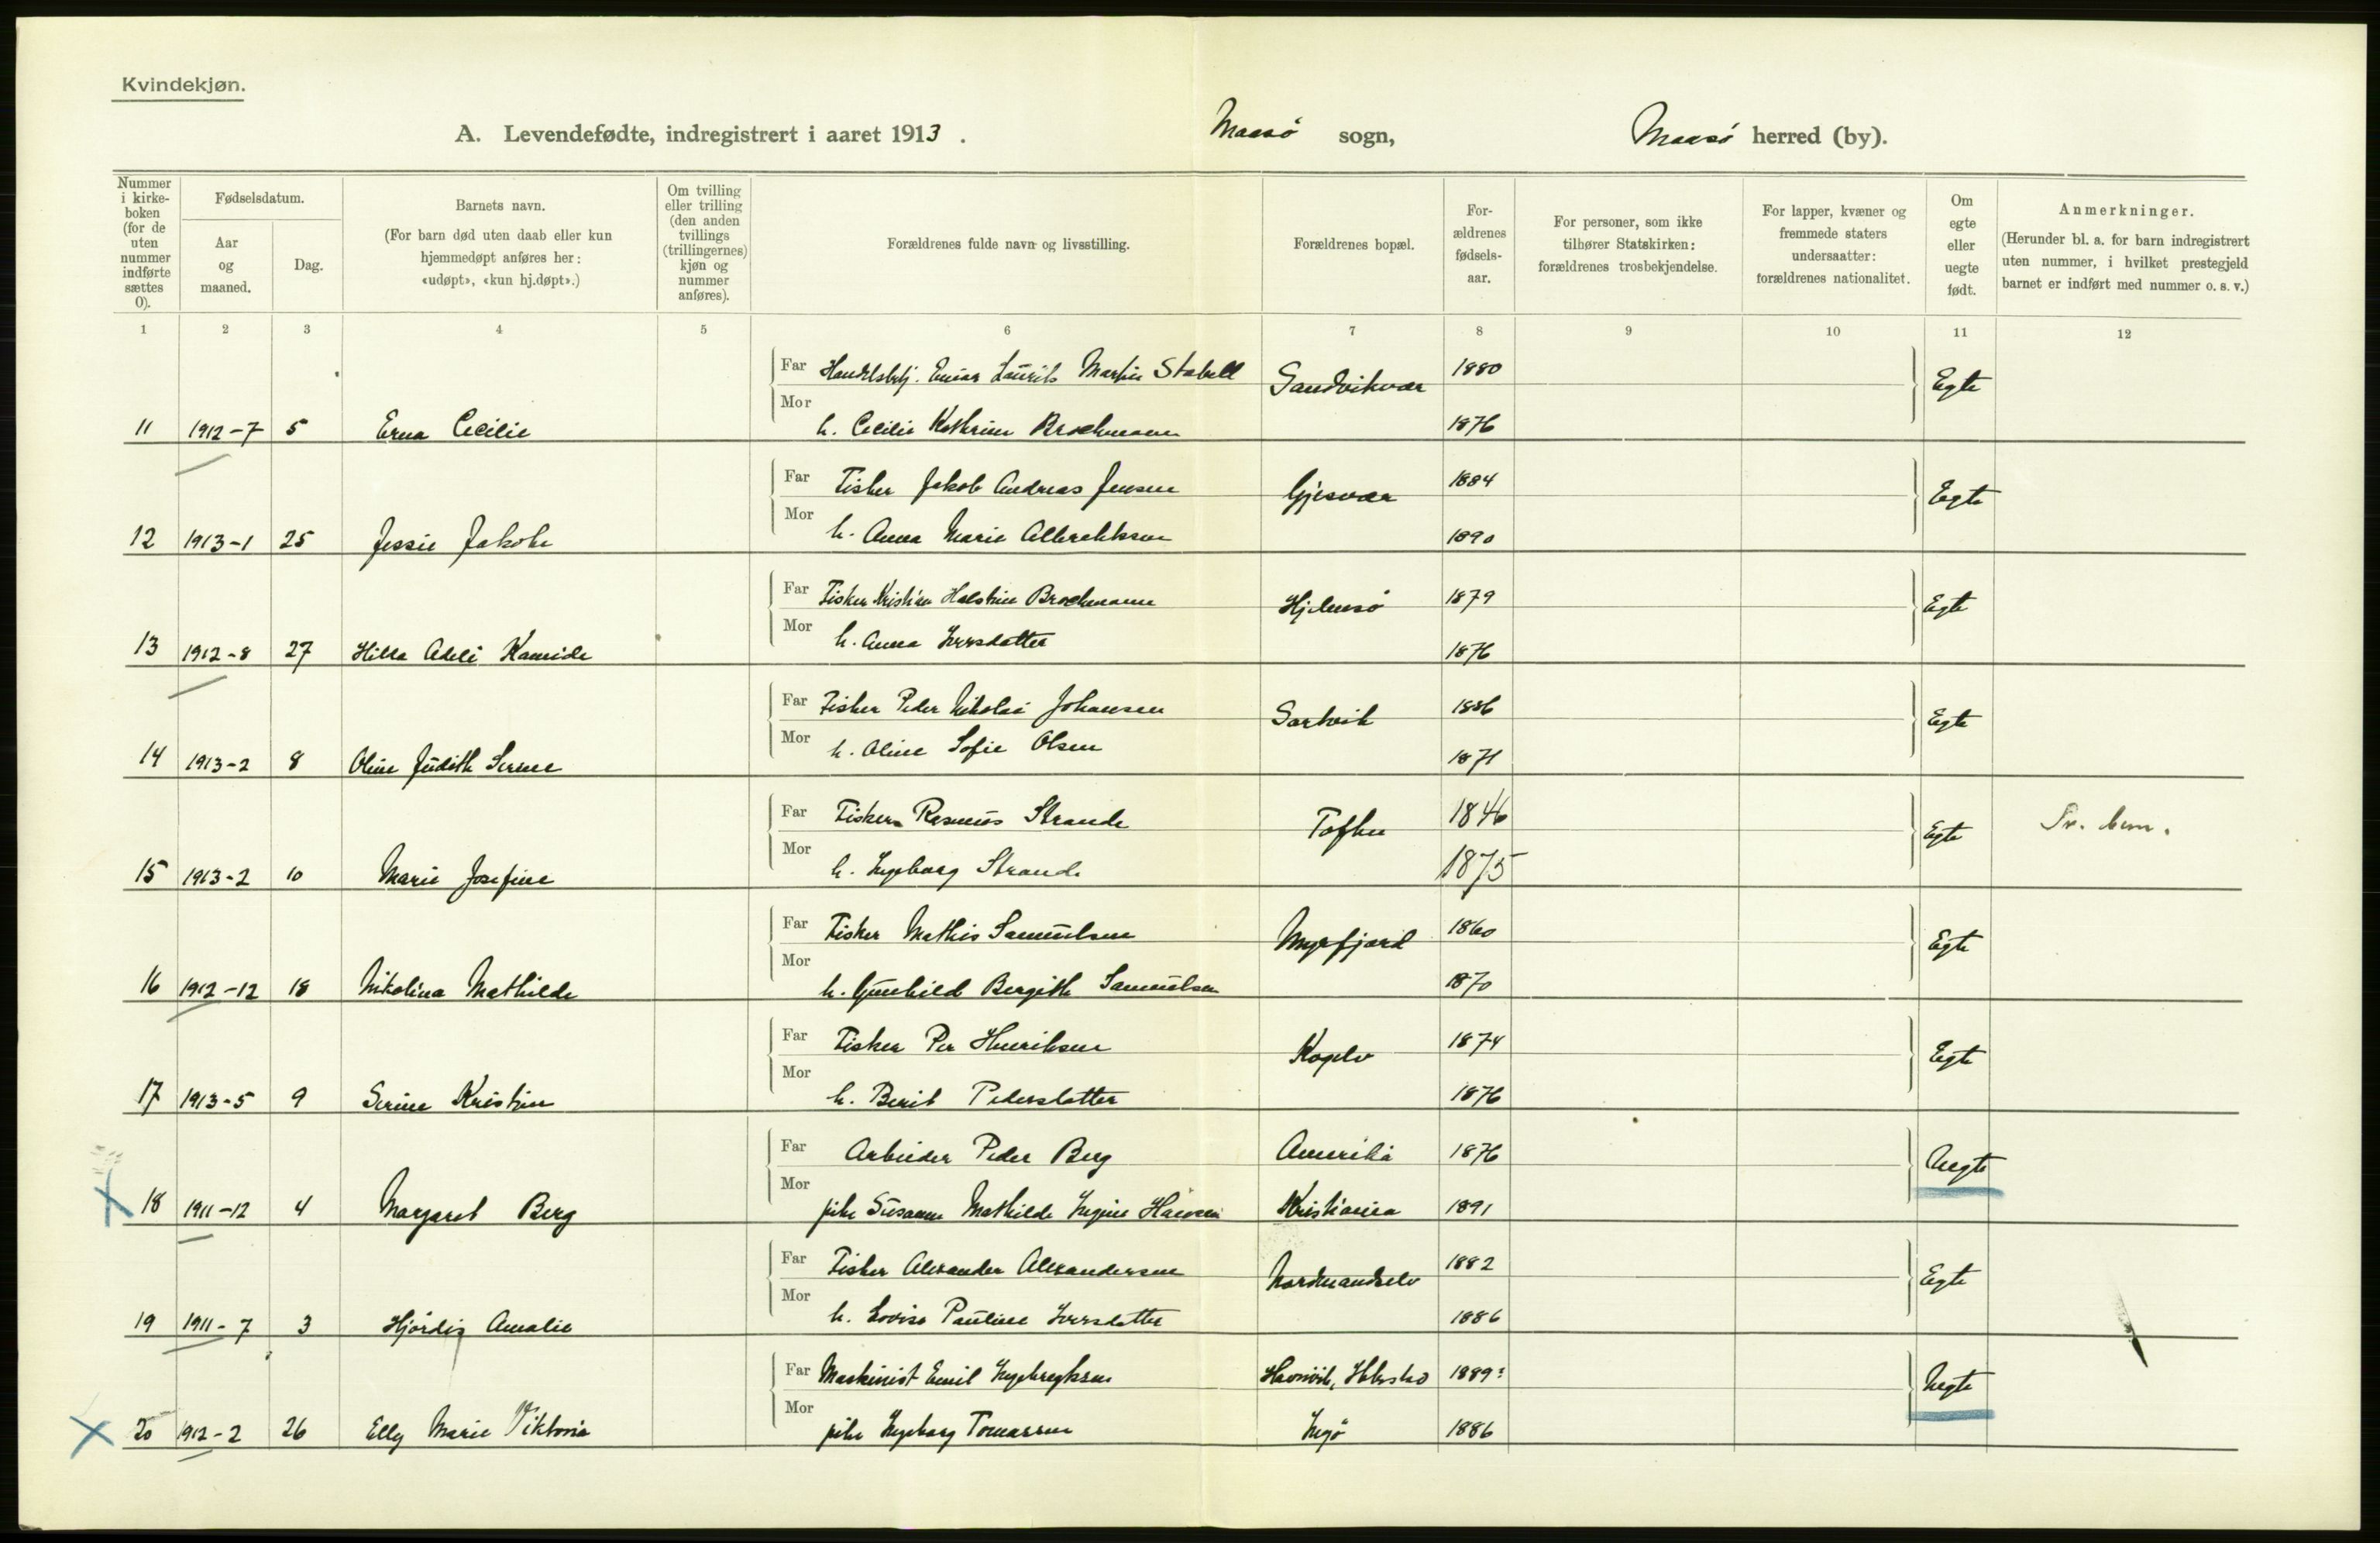 Kvindekjøn.
A. Levendefødte, indregistrert i aaret 1913. Maasø sogn, Maasø herred (by).
Nummer i kirke-boken (for de uten nummer indførte sættes 0).
Fødselsdatum.
Aar og maaned.
Dag.
Barnets navn.
(For barn død uten daab eller kun hjemmedøpt anføres her: «udøpt», «kun hj.døpt».)
Om tvilling eller trilling (den anden tvillings (trillingernes) kjøn og nummer anføres).
Forældrenes fulde navn og livsstilling.
Forældrenes bopæl.
For-ældrenes fødsels-aar.
For personer, som ikke tilhører Statskirken: forældrenes trosbekjendelse.
For lapper, kvæner og fremmede staters undersaatter: forældrenes nationalitet.
Om egte eller uegte født.
Anmerkninger.
(Herunder bl. a. for barn indregistrert uten nummer, i hvilket prestegjeld barnet er indført med nummer o. s. v.)
1 2 3 4 5 6 7 8 9 10 11 12
Far Handelsbetj. Einar Laurits Martin Stabell Sandvikvær 1880 Egte
Mor
11 1912-7 5 Erna Cecilie h. Cecilie Kathrine Brochmann 1876
Far Fisker Jakob Andreas Jensen Gjesvær 1884 Egte
Mor
12 1913-1 25 Jessie Jakobe h. Anna Marie Albrektsen 1890
Far Fisker Kristian Holstein Brochmann Hjelmsø 1879 Egte
Mor h. Anna Iversdatter
13 1912-8 27 Hilla Adele 1876
Far Fisker Peder Nikolai Johansen Sarvik 1886 Egte
Mor h. Oline Sofie Olsen
14 1913-2 8 Oline Judith 1871
Far Fisker Rasmus Strande 1846 Egte
Mor
15 1913-2 10 Marie Josefine h. Ingeborg Strande 1875
Far Fisker Mathis Samuelsen Myrfjord 1860 Egte
Mor
16 1912-12 18 Nikolina Mathilde h. Gunhild Bergith Samuelsen 1870
Far Fisker Per Henriksen Kogelv 1874 Egte
Mor
17 1913-5 9 Serine Kristine h. Berit Pedersdatter 1876
Far Arbeider Peder Berg Amerika 1876 Uegte
Mor
18 1911-12 4 Margaret Berg pike Susanne Mathilde Regine Hansen Kristiania 1891
Far Fisker Alexander Alexandersen Nordmandselv 1882 Egte
Mor
19 1911-7 3 Hjördis Amalie h. Lovise Pauline Iversdatter 1886
Far Maskinist Emil Ingebregtsen 1889? Uegte
Mor
20 1912-2 26 Elly Marie Viktoria pike Ingeborg Tomassen Ingö 1886